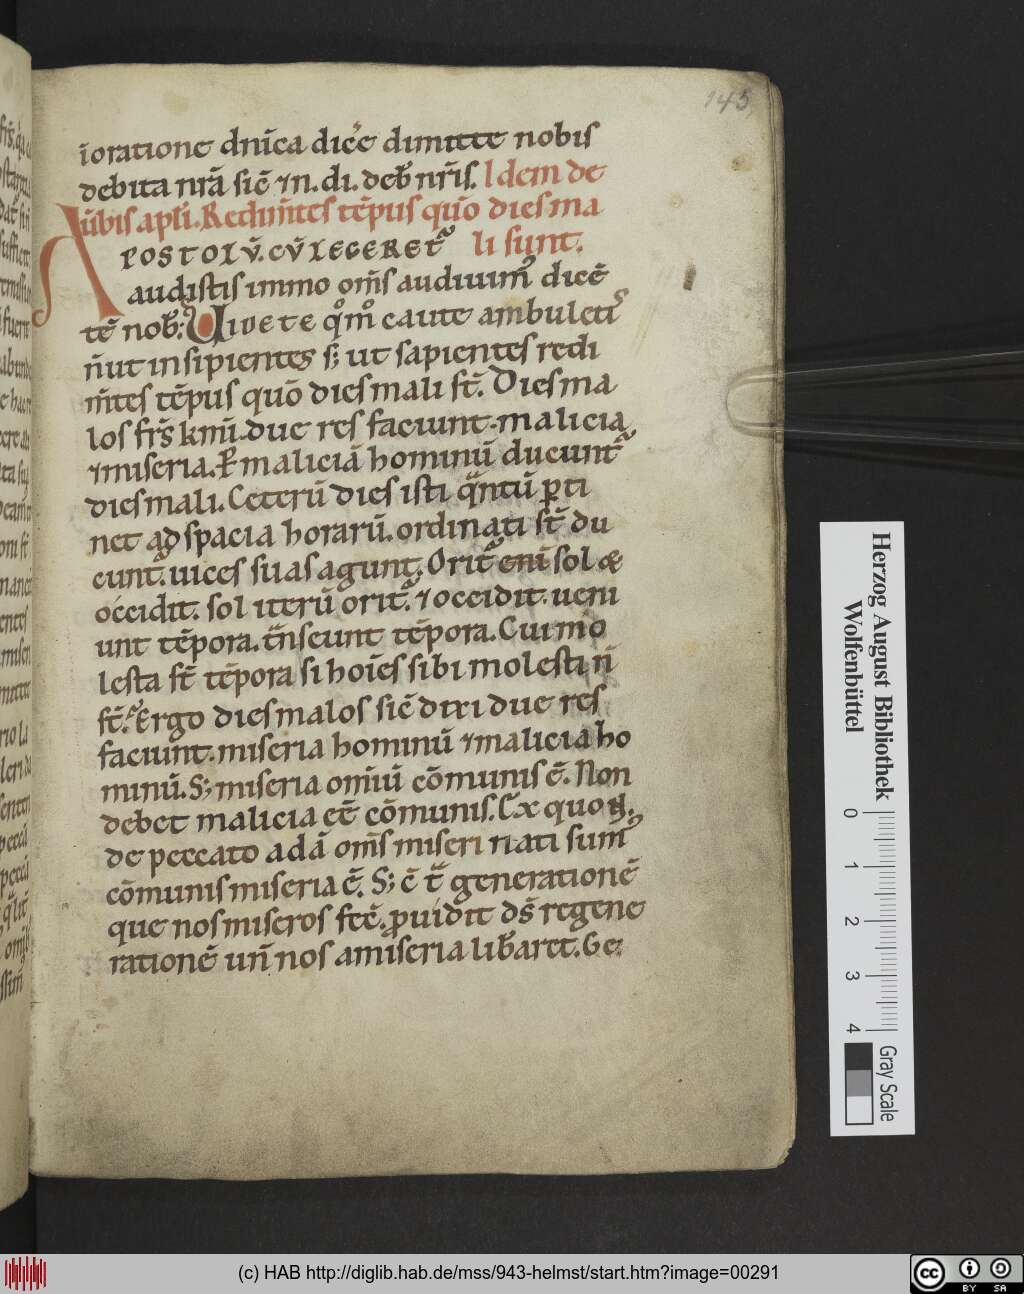 145
īoratione dnīca dic̄e dimitte nobis
debita nrā sic̄ ⁊n. di. deb̄ nr̄is. Idem de
ūbis apl̄i. Redim̄tes tēpus qūo dies ma
POSTOLV̄. CV̄ LEGERET᷑ li sunt.
audistis immo om̄s audiuim᷒ dicē
tē nob̄; Uidete qͦmͦ caute ambuleti᷒
n̄ ut insipientes s; ut sapientes redi
m̄tes tēpus quō dies mali st̄. Dies ma
los fr̄s km̄i. due res faciunt. malicia
⁊miseria. P̱ maliciā hominū ducunt᷑
dies mali. Ceterū dies isti qͣntū ꝑti
net ad spacia horarū. ordinati st̄ du
cunt᷑. uices suas agunt. Orit᷑ eni sol &
occidit. sol iterū orit᷑. ⁊occidit. ueni
unt tēpora. t̄nseunt tēpora. Cui mo
lesta st̄ tēpora si hoīes sibi molesti n̄
st̄. Ergo dies malos sic̄ dixi due res
faciunt. miseria hominū ⁊malicia ho
minū. S; miseria omīū cōmunis ē. Non
debet malicia eē cōmunis. Ex quo n̄.
de peccato adā om̄s miseri nati sum᷒
cōmunis miseria ē. S; ē t̄ generationē
que nos miseros fec̄. ꝓuidit ds̄ regene
rationē un̄ nos amiseria lib̄aret. Ge
Herzog August Bibliothek
Wolfenbüttel
0 1 2 3 4
Gray Scale
(c) HAB http://diglib.hab.de/mss/943-helmst/start.htm?image=00291
cc BY SA